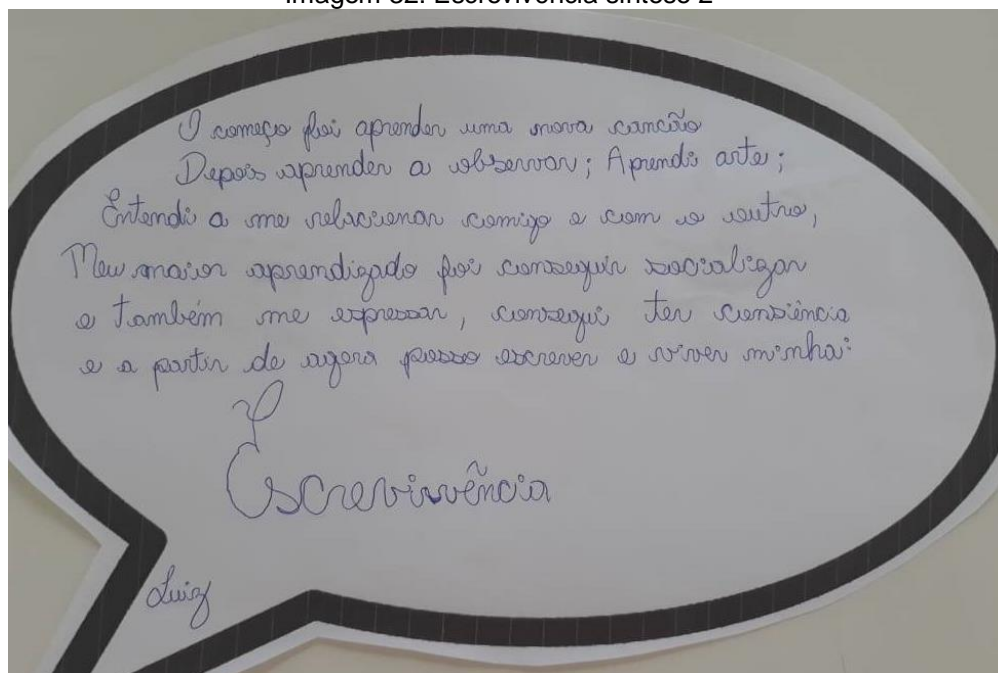 Imagem 32: Escrevivência síntese 2
O começo foi aprender uma nova canção
Depois aprender a observar; Aprendi arte;
Entendi a me relacionar comigo e com o outro,
Meu maior aprendizado foi conseguir socializar
e também me expressar, consegui ter consiência
e a partir de agora posso escrever e viver minha:
Escrevivência
Luiz